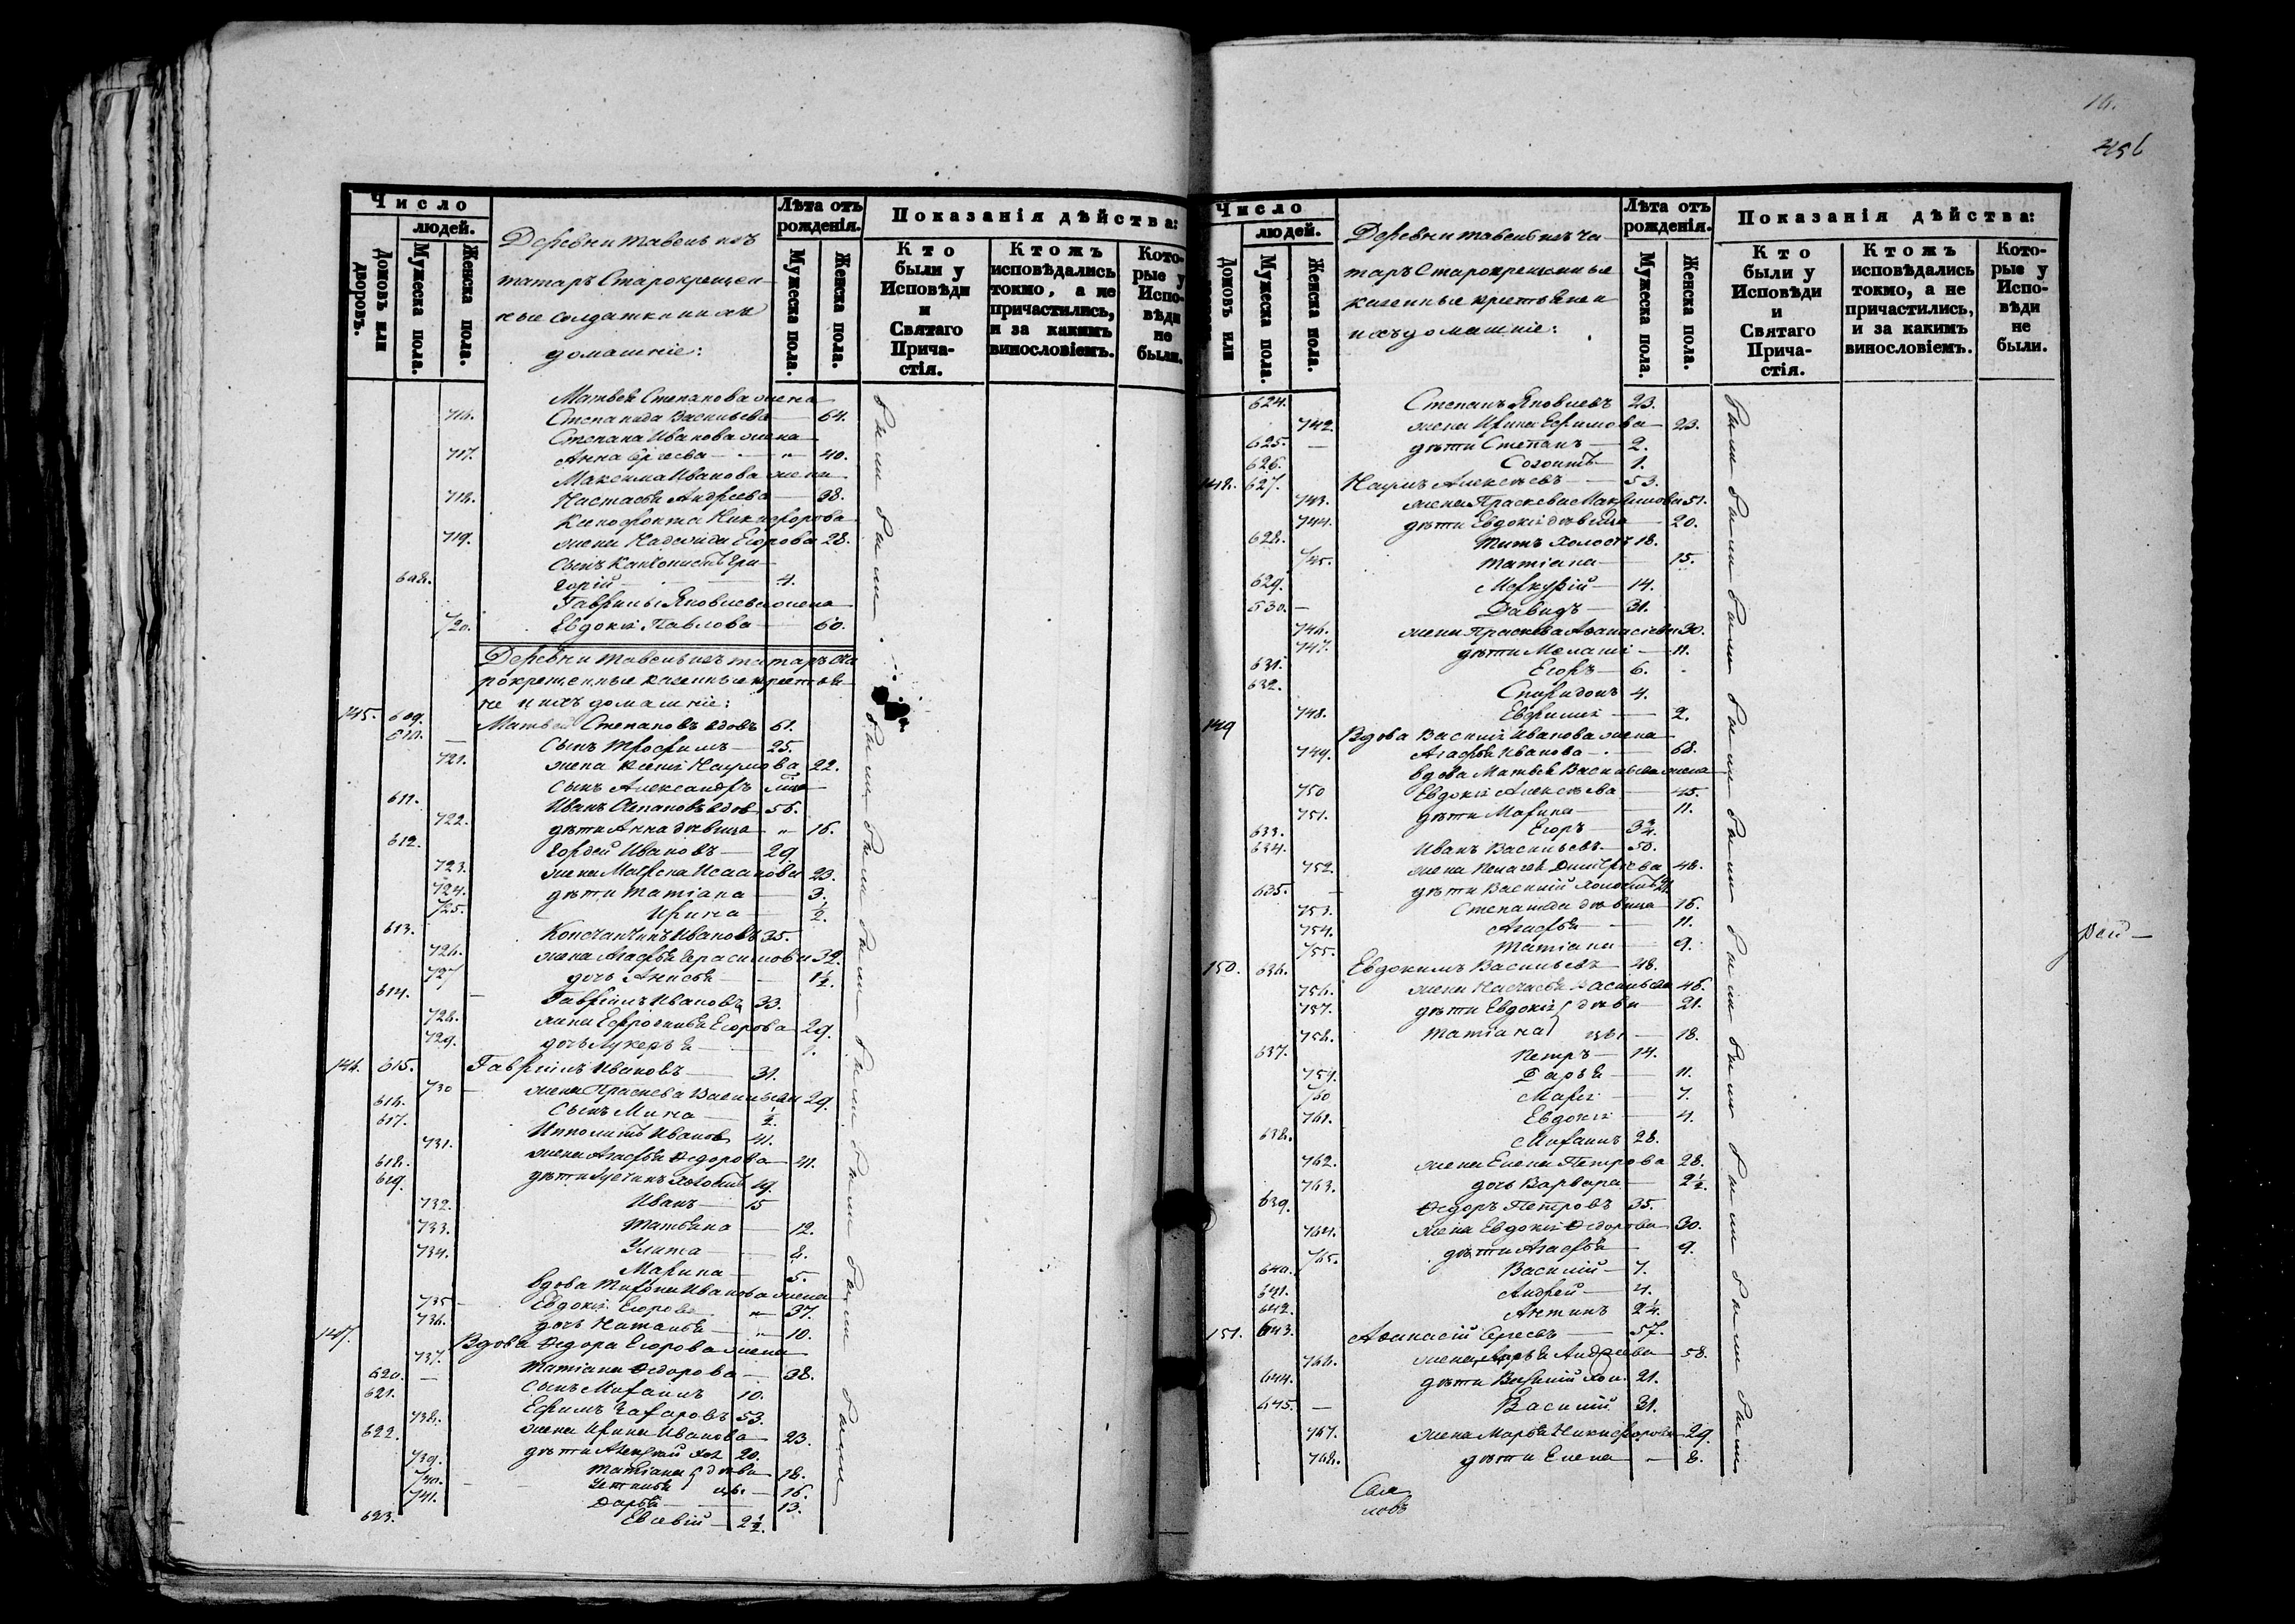 Число
людей.
Домовъ или дворовъ.
Мужеска пола.
Женска пола.
Деревни тавель изъ
татаръ Старокрещен-
ные солдатки и ихъ
домашніе:
Лѣта отъ рожденія.
Мужеска пола.
Женска пола.
Показанія дѣйства:
Кто были у Исповѣди и Святаго Прича-стія.
Ктожъ исповѣдались токмо, а не причастились, и за какимъ винословіемъ.
Кото-рые у Испо-вѣди не были.
Матвея Степанова жена
716. Степанида Васильева 64.
Степана Иванова жена
717. Анна 40.
Максима Иванова жена
718. Настасья Андреева 38.
Ксенофонта Никифорова
719. жена Надежда Егорова 28.
сынъ Кантонистъ Гри-
608. горій 4.
Гаврилы Яковлева жена
720. Евдокія Павлова 60.
Деревни тавель изъ татаръ ста
рокрещенные казенные крестья-
не и ихъ домашніе:
145. 609. Матвей Степановъ вдовъ 61.
610. сынъ Трофимъ 25.
721. жена Ксенія Наумова 22.
сынъ Александръ
611. Иванъ Степановъ вдов 56.
722. дѣти Анна дѣвица 16.
612. Гордей Ивановъ 29.
723. жена Матрена Исаакова 23.
724. дѣти Татіана 3.
725. Ирина ½.
613. Константинъ Ивановъ 35.
726. жена Агафья Герасимова 32.
727 дочь Анисья 1½.
614. Гавріилъ Ивановъ 33.
728. жена Ефросинья Егорова 29.
729. дочь Лукерья 1.
146. 615. Гавріилъ Ивановъ 31.
730 жена Прасковья Васильева 29.
616. сынъ Мина ½.
617. Ипполитъ Иванов 41.
731. жена Агафья Ѳедорова 41.
618. дѣти Іустинъ холостъ 19.
619. Иванъ 15
732. Татьяна 12.
733. Улита 8.
734. Марина 5.
вдова Иванова жена
735 Евдокія Егорова 37.
736. дочь Наталья 10.
147. Вдова Ѳедора Егорова жена
737. Татіана Ѳедорова 38.
620. сынъ Михаилъ 10.
621. Ефимъ Захаровъ 53.
738. жена Ирина Иванова 23.
622. дѣти Алексѣй хол 20.
739. Татіана дѣви 18.
740. Устинья цы 16.
741. Дарья 13.
623. Евсевій 2½.
были были были были были были были были были были
Число
людей.
Домовъ или
Мужеска пола.
Женска пола.
Деревни тавель изъ та-
таръ Старокрещенные
казенные крестьяне и
ихъ домашніе:
Лѣта отъ рожденія.
Мужеска пола.
Женска пола.
Показанія дѣйства:
Кто были у Исповѣди и Святаго Прича-стія.
Ктожъ исповѣдались токмо, а не причастились, и за какимъ винословіемъ.
Кото-рые у Испо-вѣди не были.
624. Степанъ Яковлевъ 23.
742. жена Ирина Ефимова 23.
625. дѣти Степанъ 2.
626. Созонтъ 1.
148. 627. Наумъ Алексѣевъ 53.
743. жена Прасковья Максимова 51.
744. дѣти Евдокія дѣвица 20.
628. Титъ холостъ 18.
745. Татіана 15.
629. Меркурій 14.
630. Давидъ 31.
746. жена Прасковья Аѳанасіева 30.
747. дѣти Меланія 11.
631. Егоръ 6.
632. Спиридонъ 4.
748. Евфимія 2.
149 Вдова Василія Иванова жена
749. Агафья Иванова 68.
вдова Матвея Васильева жена
750 Евдокія Алексѣева 45.
751. дѣти Марина 11.
633. Егоръ 3¾.
634. Иванъ Васильевъ 50.
752. жена Пелагея Дмитріева 48.
635. дѣти Василій холостъ 21.
753. Степанида дѣвица 16.
754. Агафья 11.
755. Татіана 9.
150. 636. Евдокимъ Васильевъ 48.
756. жена Настасья Васильева 46.
757. дѣти Евдокія дѣви 21.
758. Татіана цы 18.
637. Петръ 14.
759. Дарья 11.
760 Марія 7.
761. Евдокія 4.
638. Михаилъ 28.
762. жена Елена Петрова 28.
763. дочь Варвара 2½.
639. Ѳедоръ Петровъ 35.
764. жена Евдокія Ѳедорова 30.
765. дѣти Агафья 9.
640. Василій 7.
641. Андрей 4.
642. Антипъ 2¼.
151. 643. Аѳанасій 57.
766. жена Дарья Андреева 58.
644. дѣти Василій хол. 21.
645. Василій 31.
767. жена Марья Никифорова 29.
768. дѣти Елена 8.
были были были были были были были были были были
456